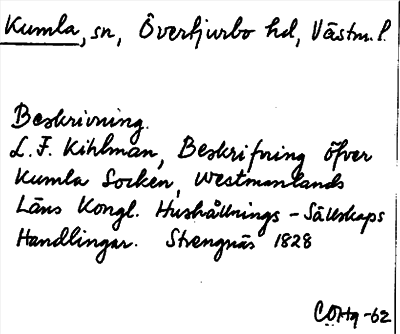 Kumla, sn, Övertjurbo hd, Västm. l.
Beskrivning.
L. F. Kihlman, Beskrifning öfver
Kumla Socken, Westmanlands
Läns Kongl. Hushållnings-Sällskaps
Handlingar. Strengnäs 1828
COHq-62